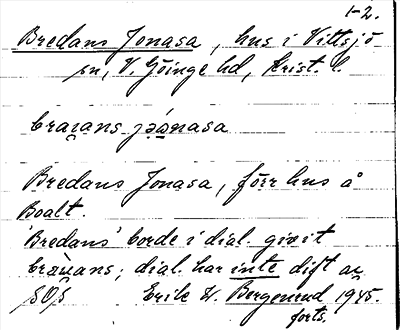 1-2.
Bredans Jonasa, hus i Vittsjö
sn, V. Göinge hd, Krist. l.
Bredans Jonasa, förr hus å
Boalt.
'Bredans' borde i dial. givit
dial. har inte dift av
Erik W. Bergenrud 1945.
forts.